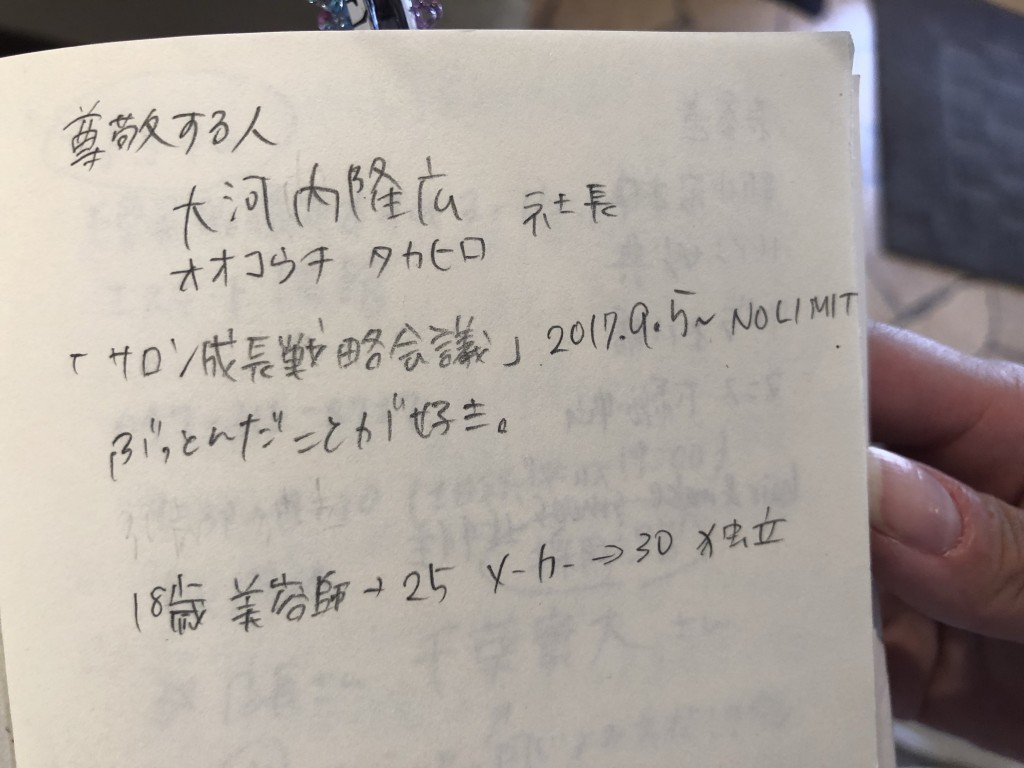 尊敬する人
大河内隆広 社長
オオコウチ タカヒロ
「サロン成長戦略会議」 2017.9.5~ NO LIMIT
ぶっとんだことが好き。
18歳 美容師→25 メーカー→30 独立